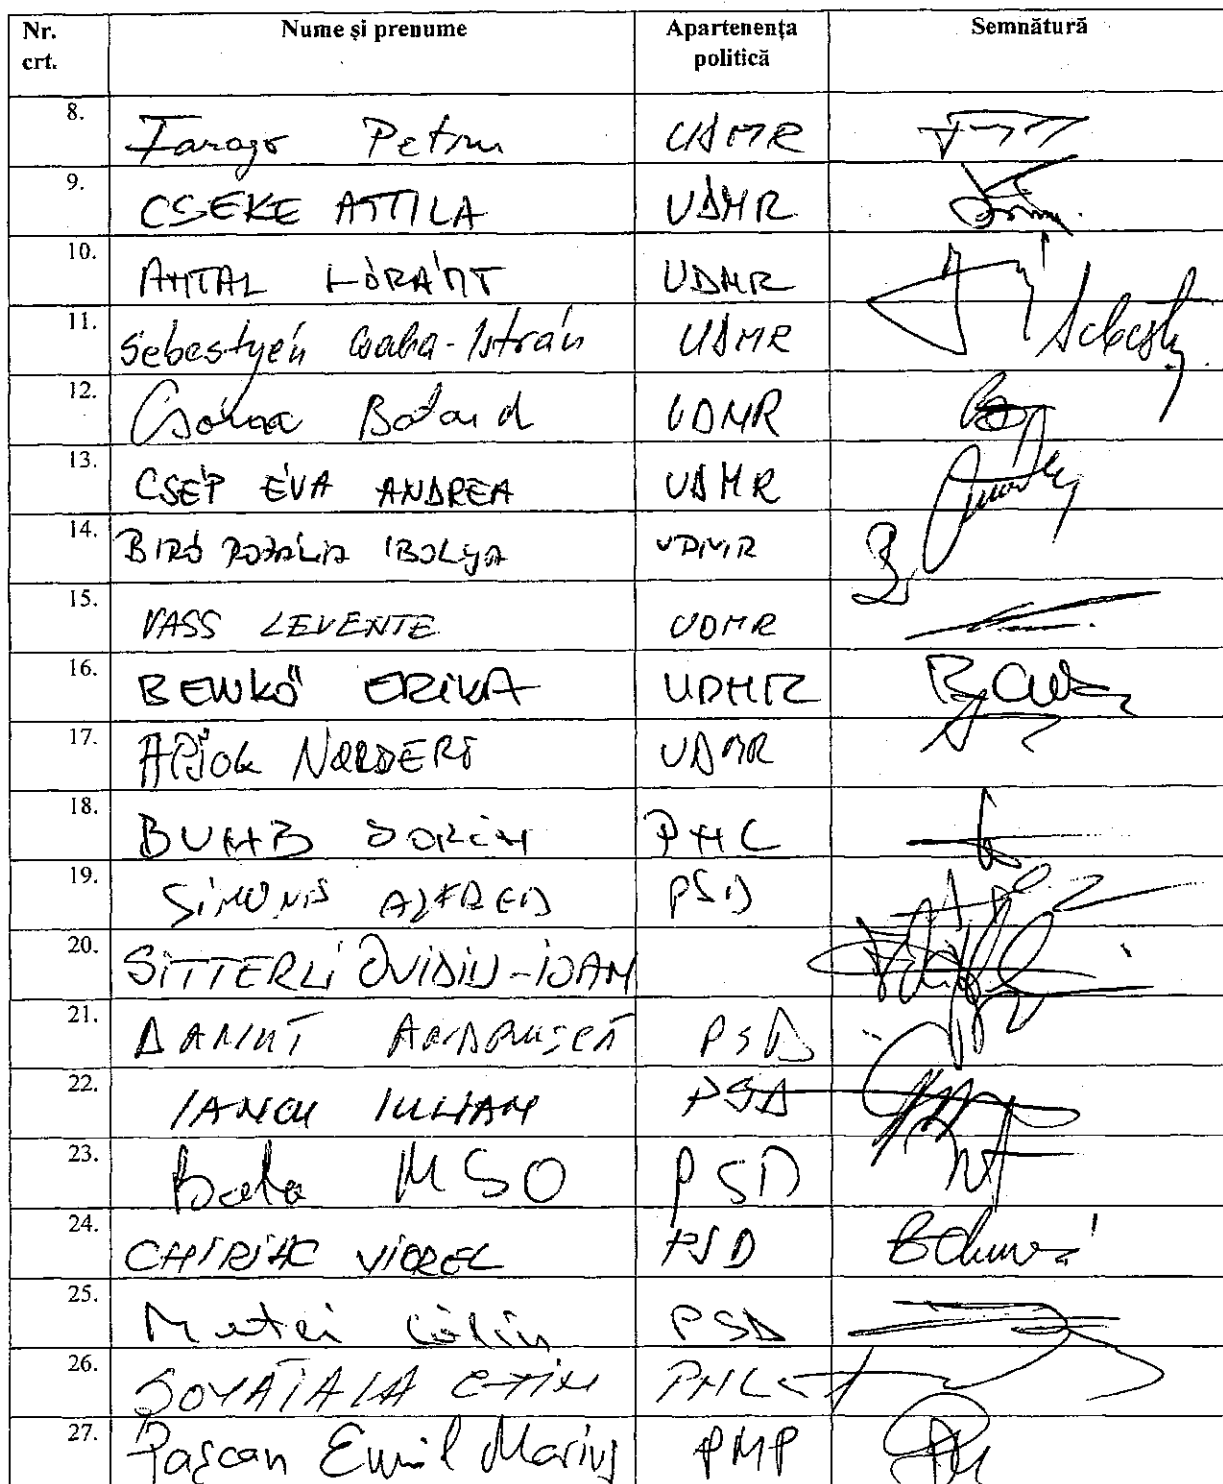 Nr. crt. Nume și prenume Apartenența politică Semnătură
8. Farago Petru UDMR
9. CSEKE ATTILA UDMR
10. ANTAL LÓRÁNT UDMR
11. Sebestyén Csaba-István UDMR Sebesty
12. Csoma Botond UDMR
13. CSÉP ÉVA ANDREA UDMR
14. BIRÓ ROZÁLIA IBOLYA UDMR
15. VASS LEVENTE UDMR
16. BENKŐ ERIKA UDMR
17. APJOK NORBERT UDMR
18. BUMB SORIN PNL
19. SIMONIS ALFRED PSD
20. SITTERLI OVIDIU-IOAN
21. DĂNUȚ ANDRUȘCĂ PSD
22. IANCU IULIAN PSD
23. PSD
24. CHIRIAC VIOREL PSD
25. Matei Călin PSD
26. PNL
27. Pașcan Emil Marius PMP